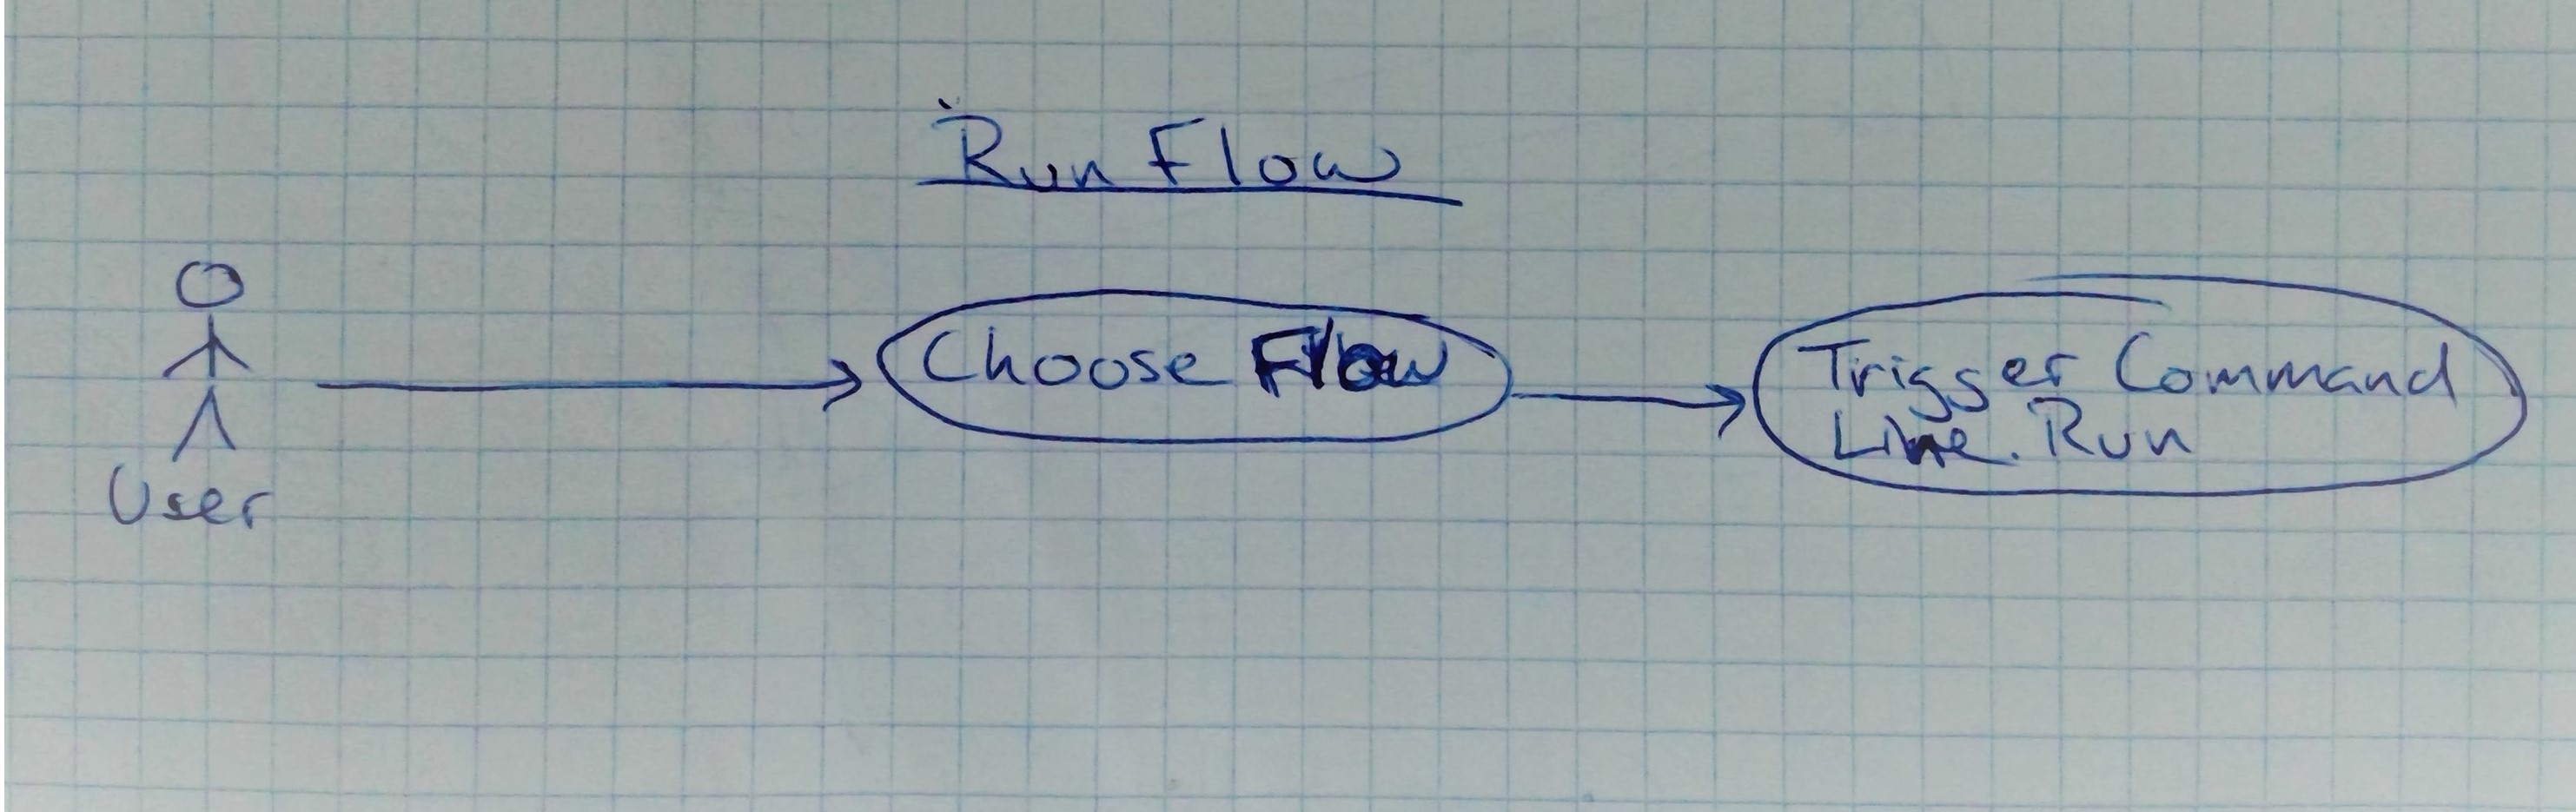 Run Flow
User
Choose Flow
Trigger Command
Line. Run